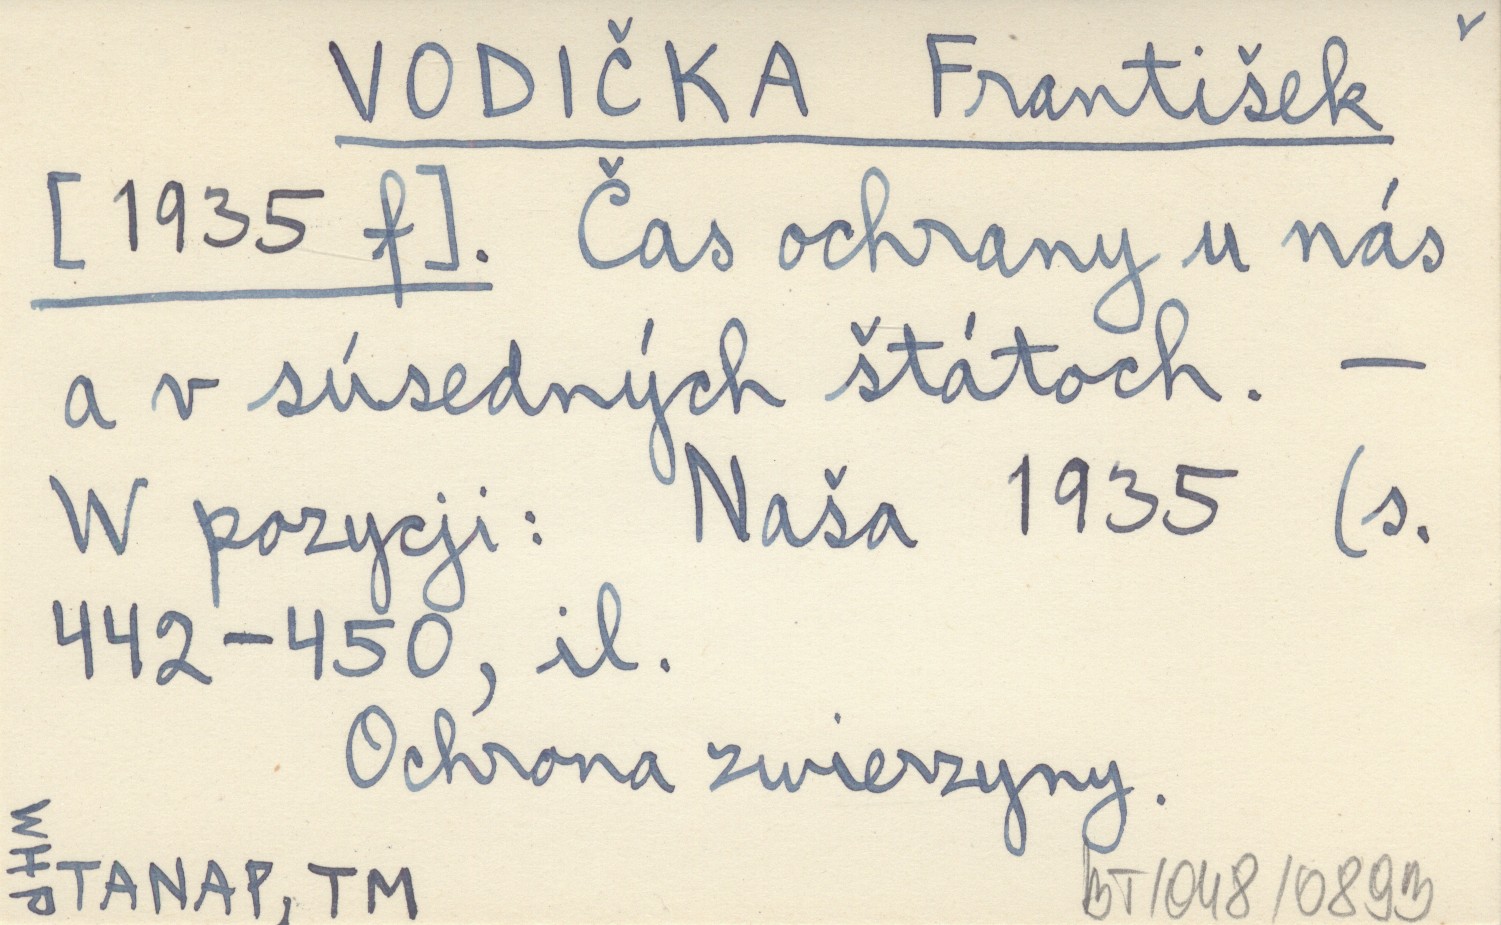 VODIČKA František
[1935 f]. Čas ochrany u nás
a v súsedných štátoch. —
W pozycji: Naša 1935 (s.
442-450, il.
Ochrona zwierzyny.
WHP
TANAP, TM
BT/048/0893